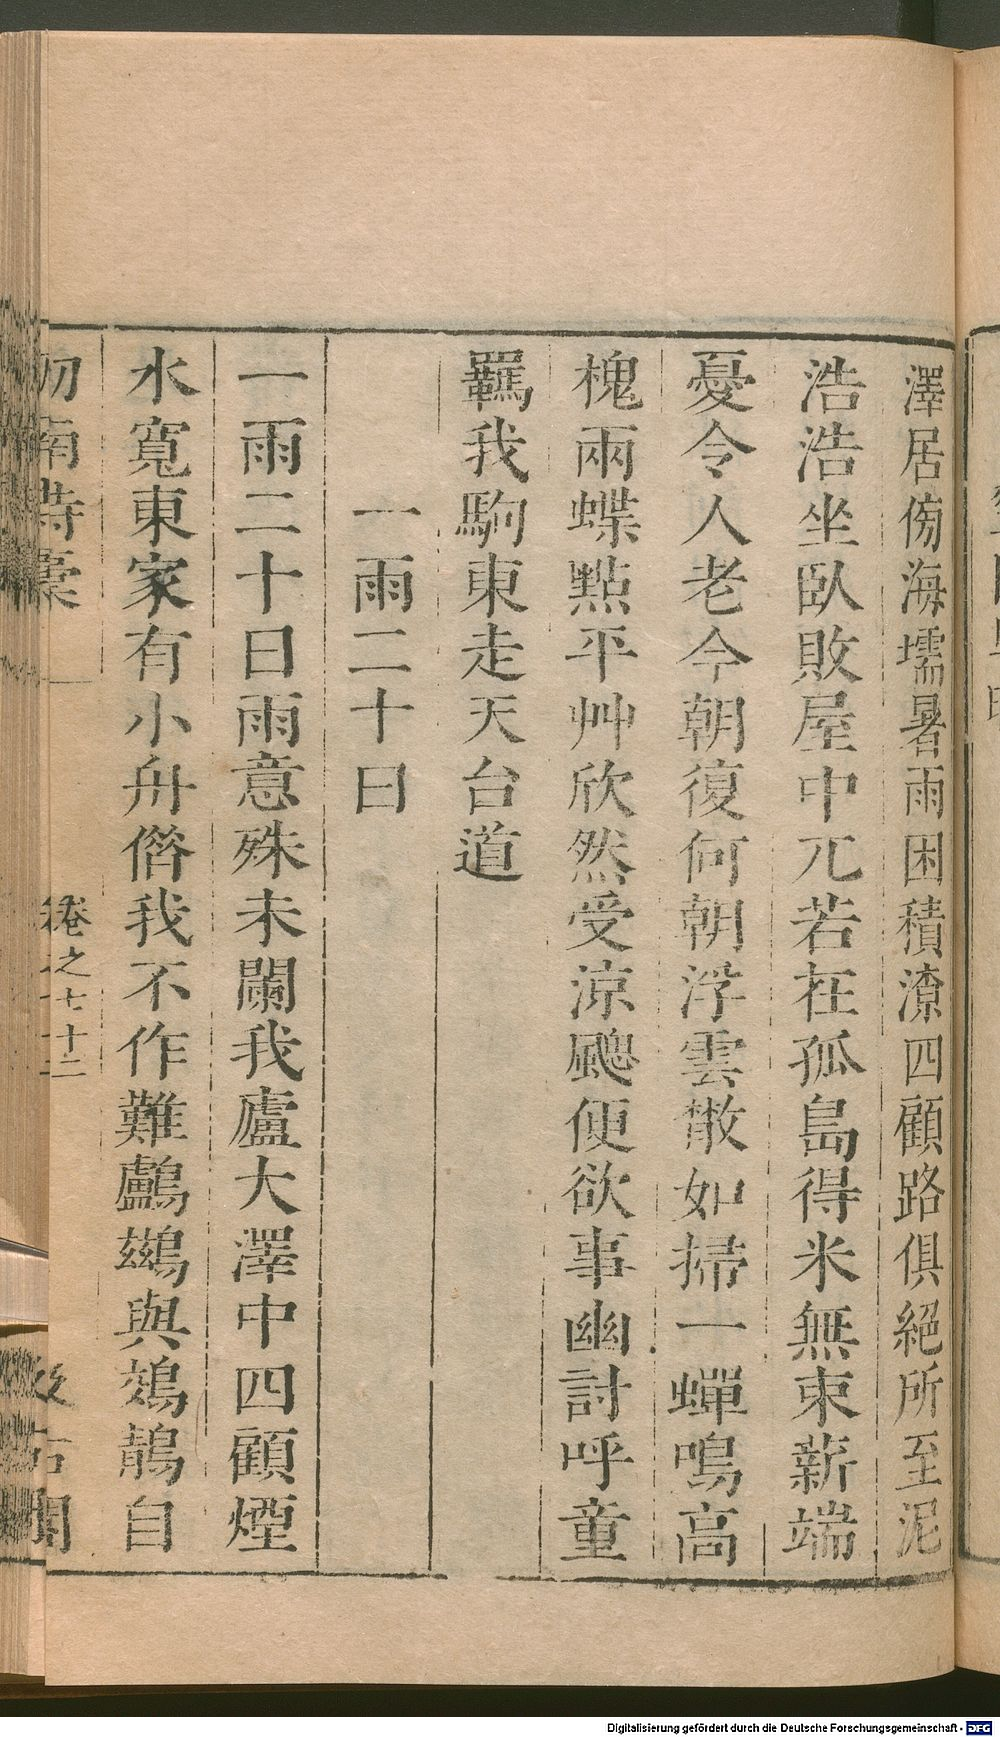 澤居傍海壖暑雨困積潦四顧路俱絕所至泥
浩浩坐臥敗屋中兀若在孤島得米無束薪端
憂令人老今朝復何朝浮雲散如掃一蟬鳴高
槐兩蝶點平艸欣然受涼颸便欲事幽討呼童
羈我駒東走天台道
一雨二十日
一雨二十日雨意殊未闌我廬大澤中四顧煙
水寬東家有小舟偺我不作難鸕鷀與鵁鶄自
劒南詩稾
卷之七十二
汲古閣
Digitalisierung gefördert durch die Deutsche Forschungsgemeinschaft - DFG